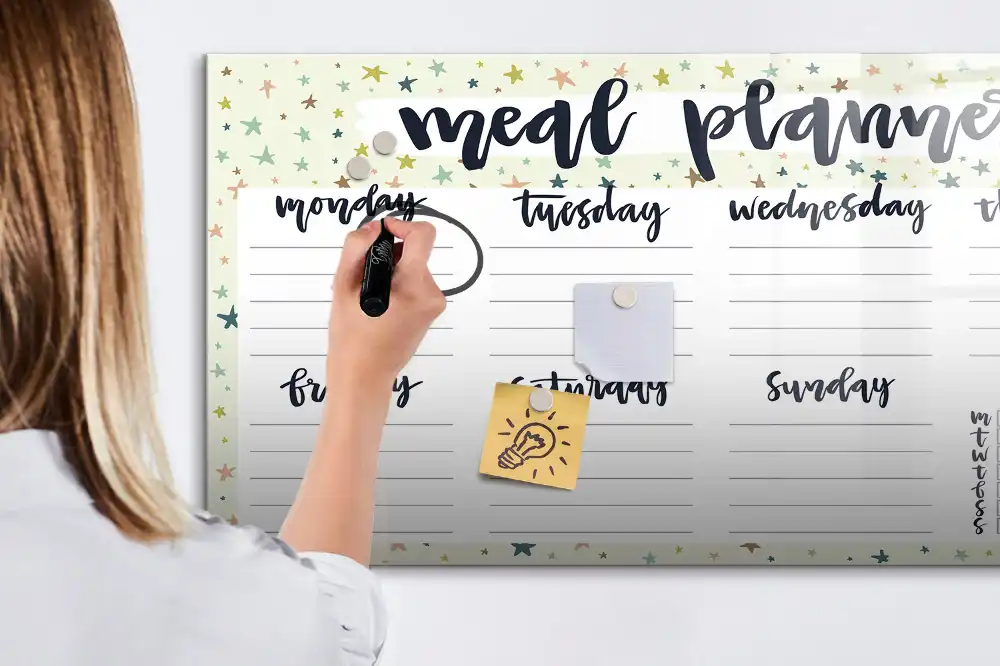 meal planner
monday tuesday wednesday
friday saturday sunday
m
t
w
t
f
s
s